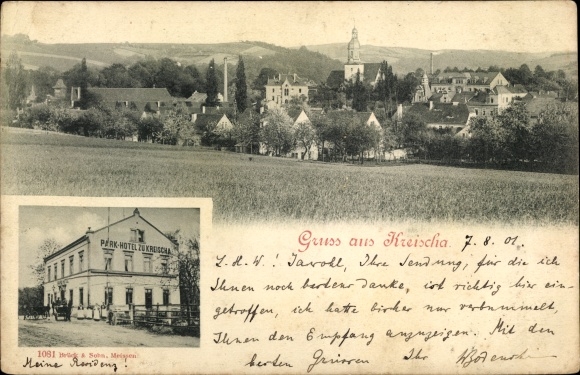 PARK-HOTEL ZU KREISCHA.
Gruss aus Kreischa.
7. 8. 01.
L. H. W.! Jawohl, Ihre Sendung, für die ich
Ihnen noch bestens danke, ist richtig hier ein-
getroffen, ich hatte bisher nur verbummelt,
Ihnen den Empfang anzuzeigen. Mit den
besten Grüssen Ihr
1081 Brück & Sohn, Meissen.
Meine Residenz!